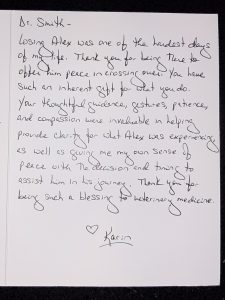 Dr. Smith-
Losing Alex was one of the hardest days
of my life. Thank you for being there to
offer him peace in crossing over. You have
such an inherent gift for what you do.
Your thoughtful guidance, gestures, patience,
and compassion were invaluable in helping
provide clarity for what Alex was experiencing
as well as giving me my own sense of
peace with the decision and timing to
assist him in his journey. Thank you for
being such a blessing to veterinary medicine.
♡ Karin